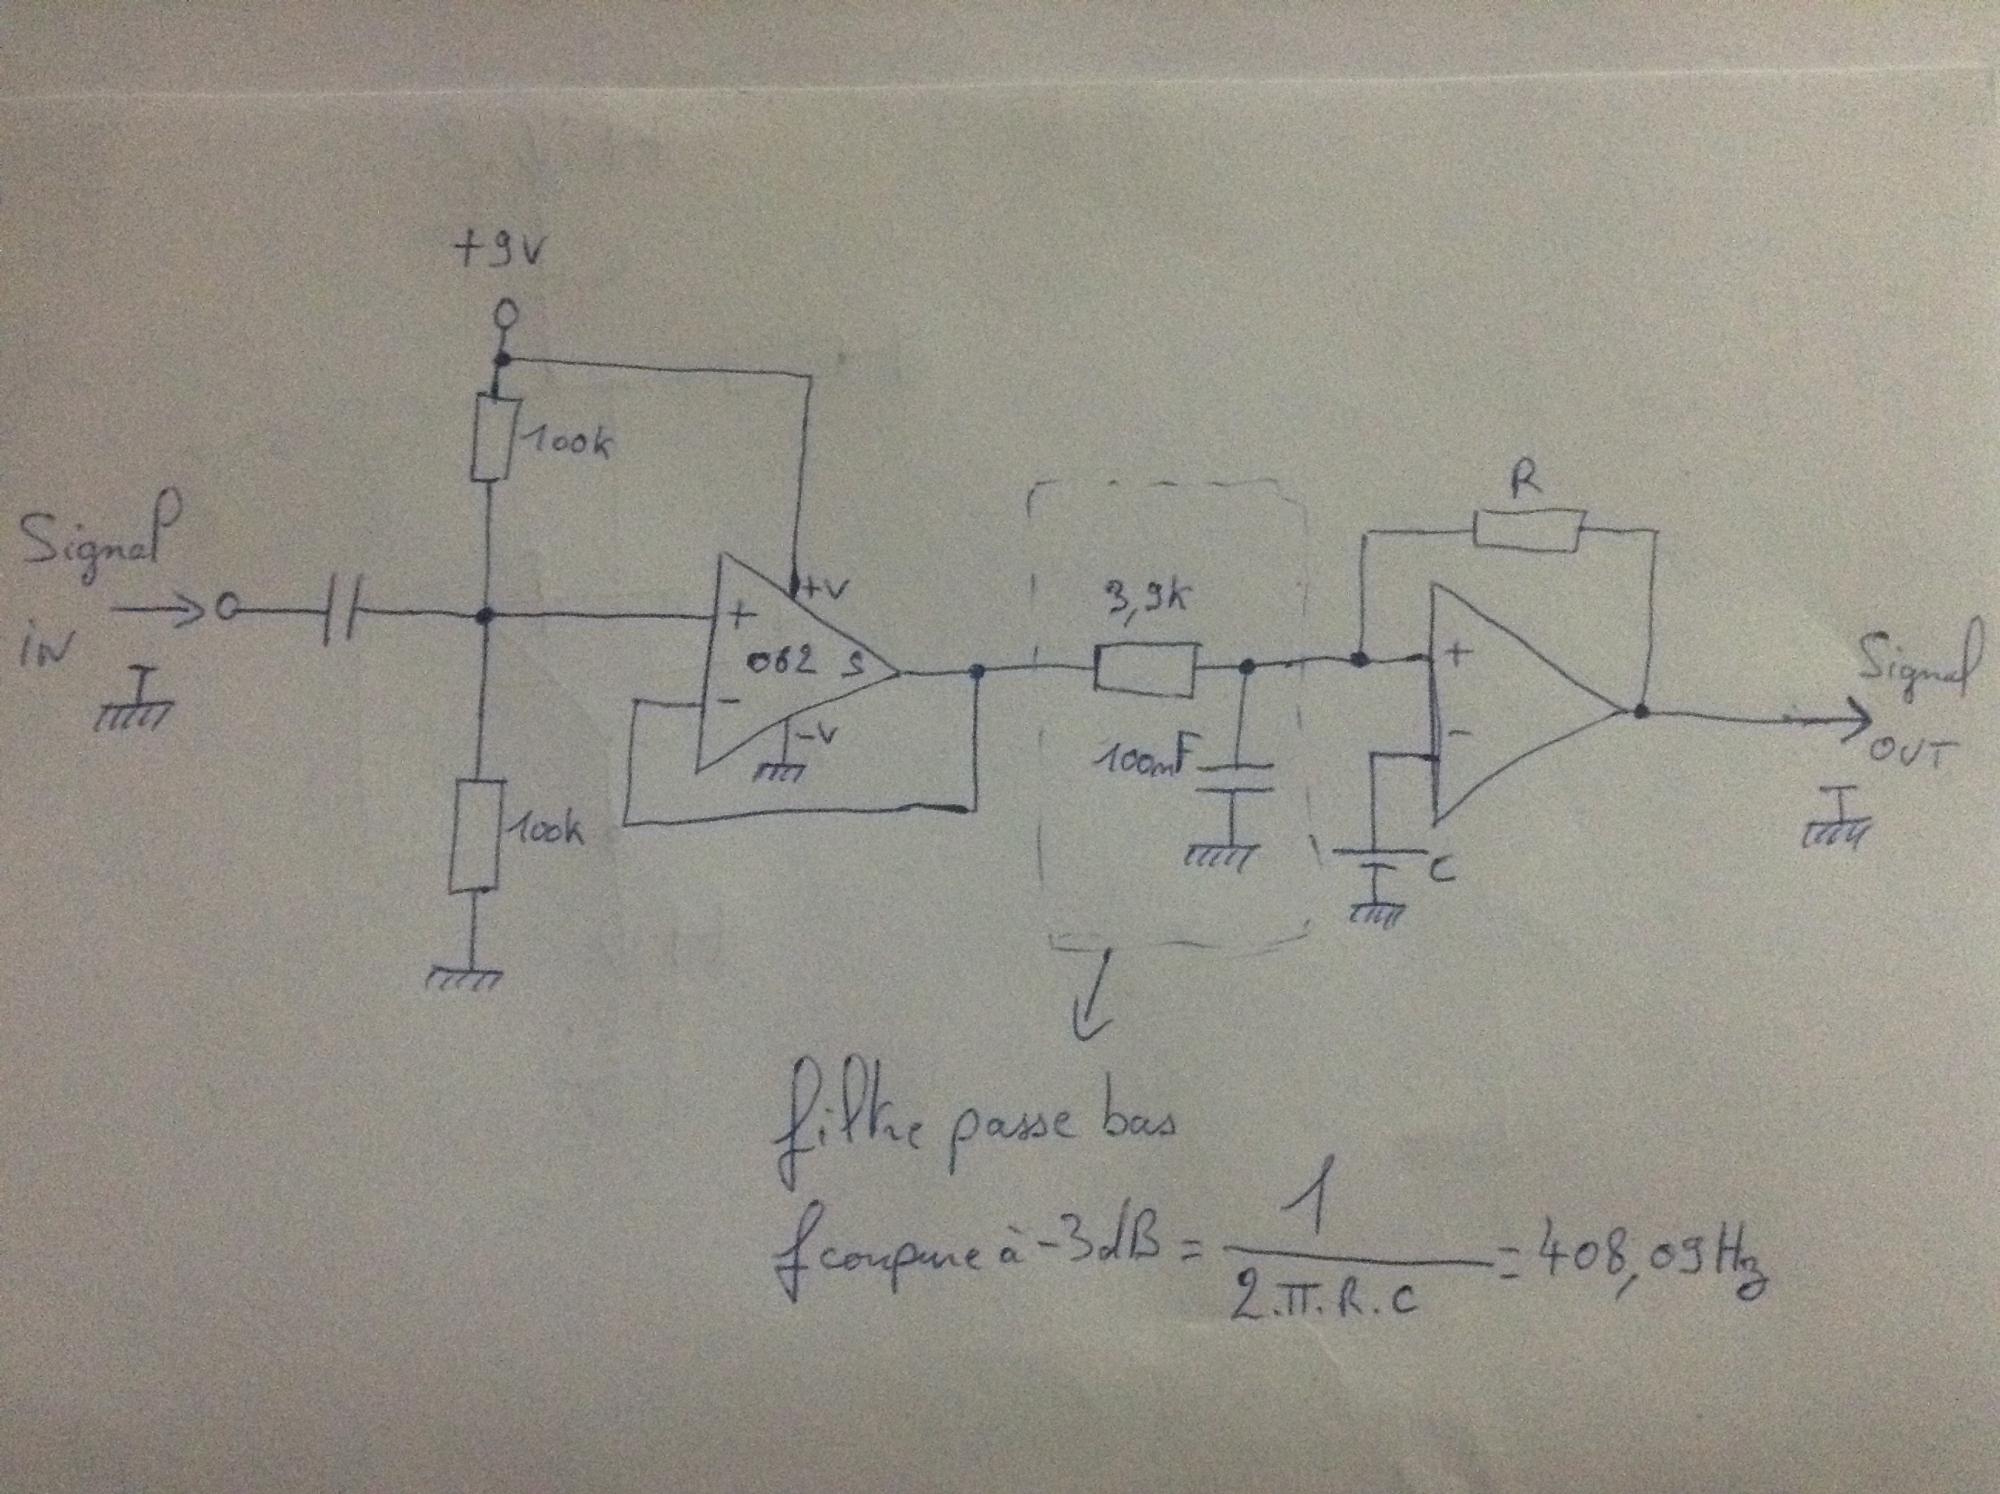 +9V
100k
Signal
IN
+
+V
062 S
-
-V
100k
3,9k
100nF
R
+
-
C
Signal
OUT
filtre passe bas
fcoupure à -3dB = 1 / 2.π.R.C = 408,09Hz